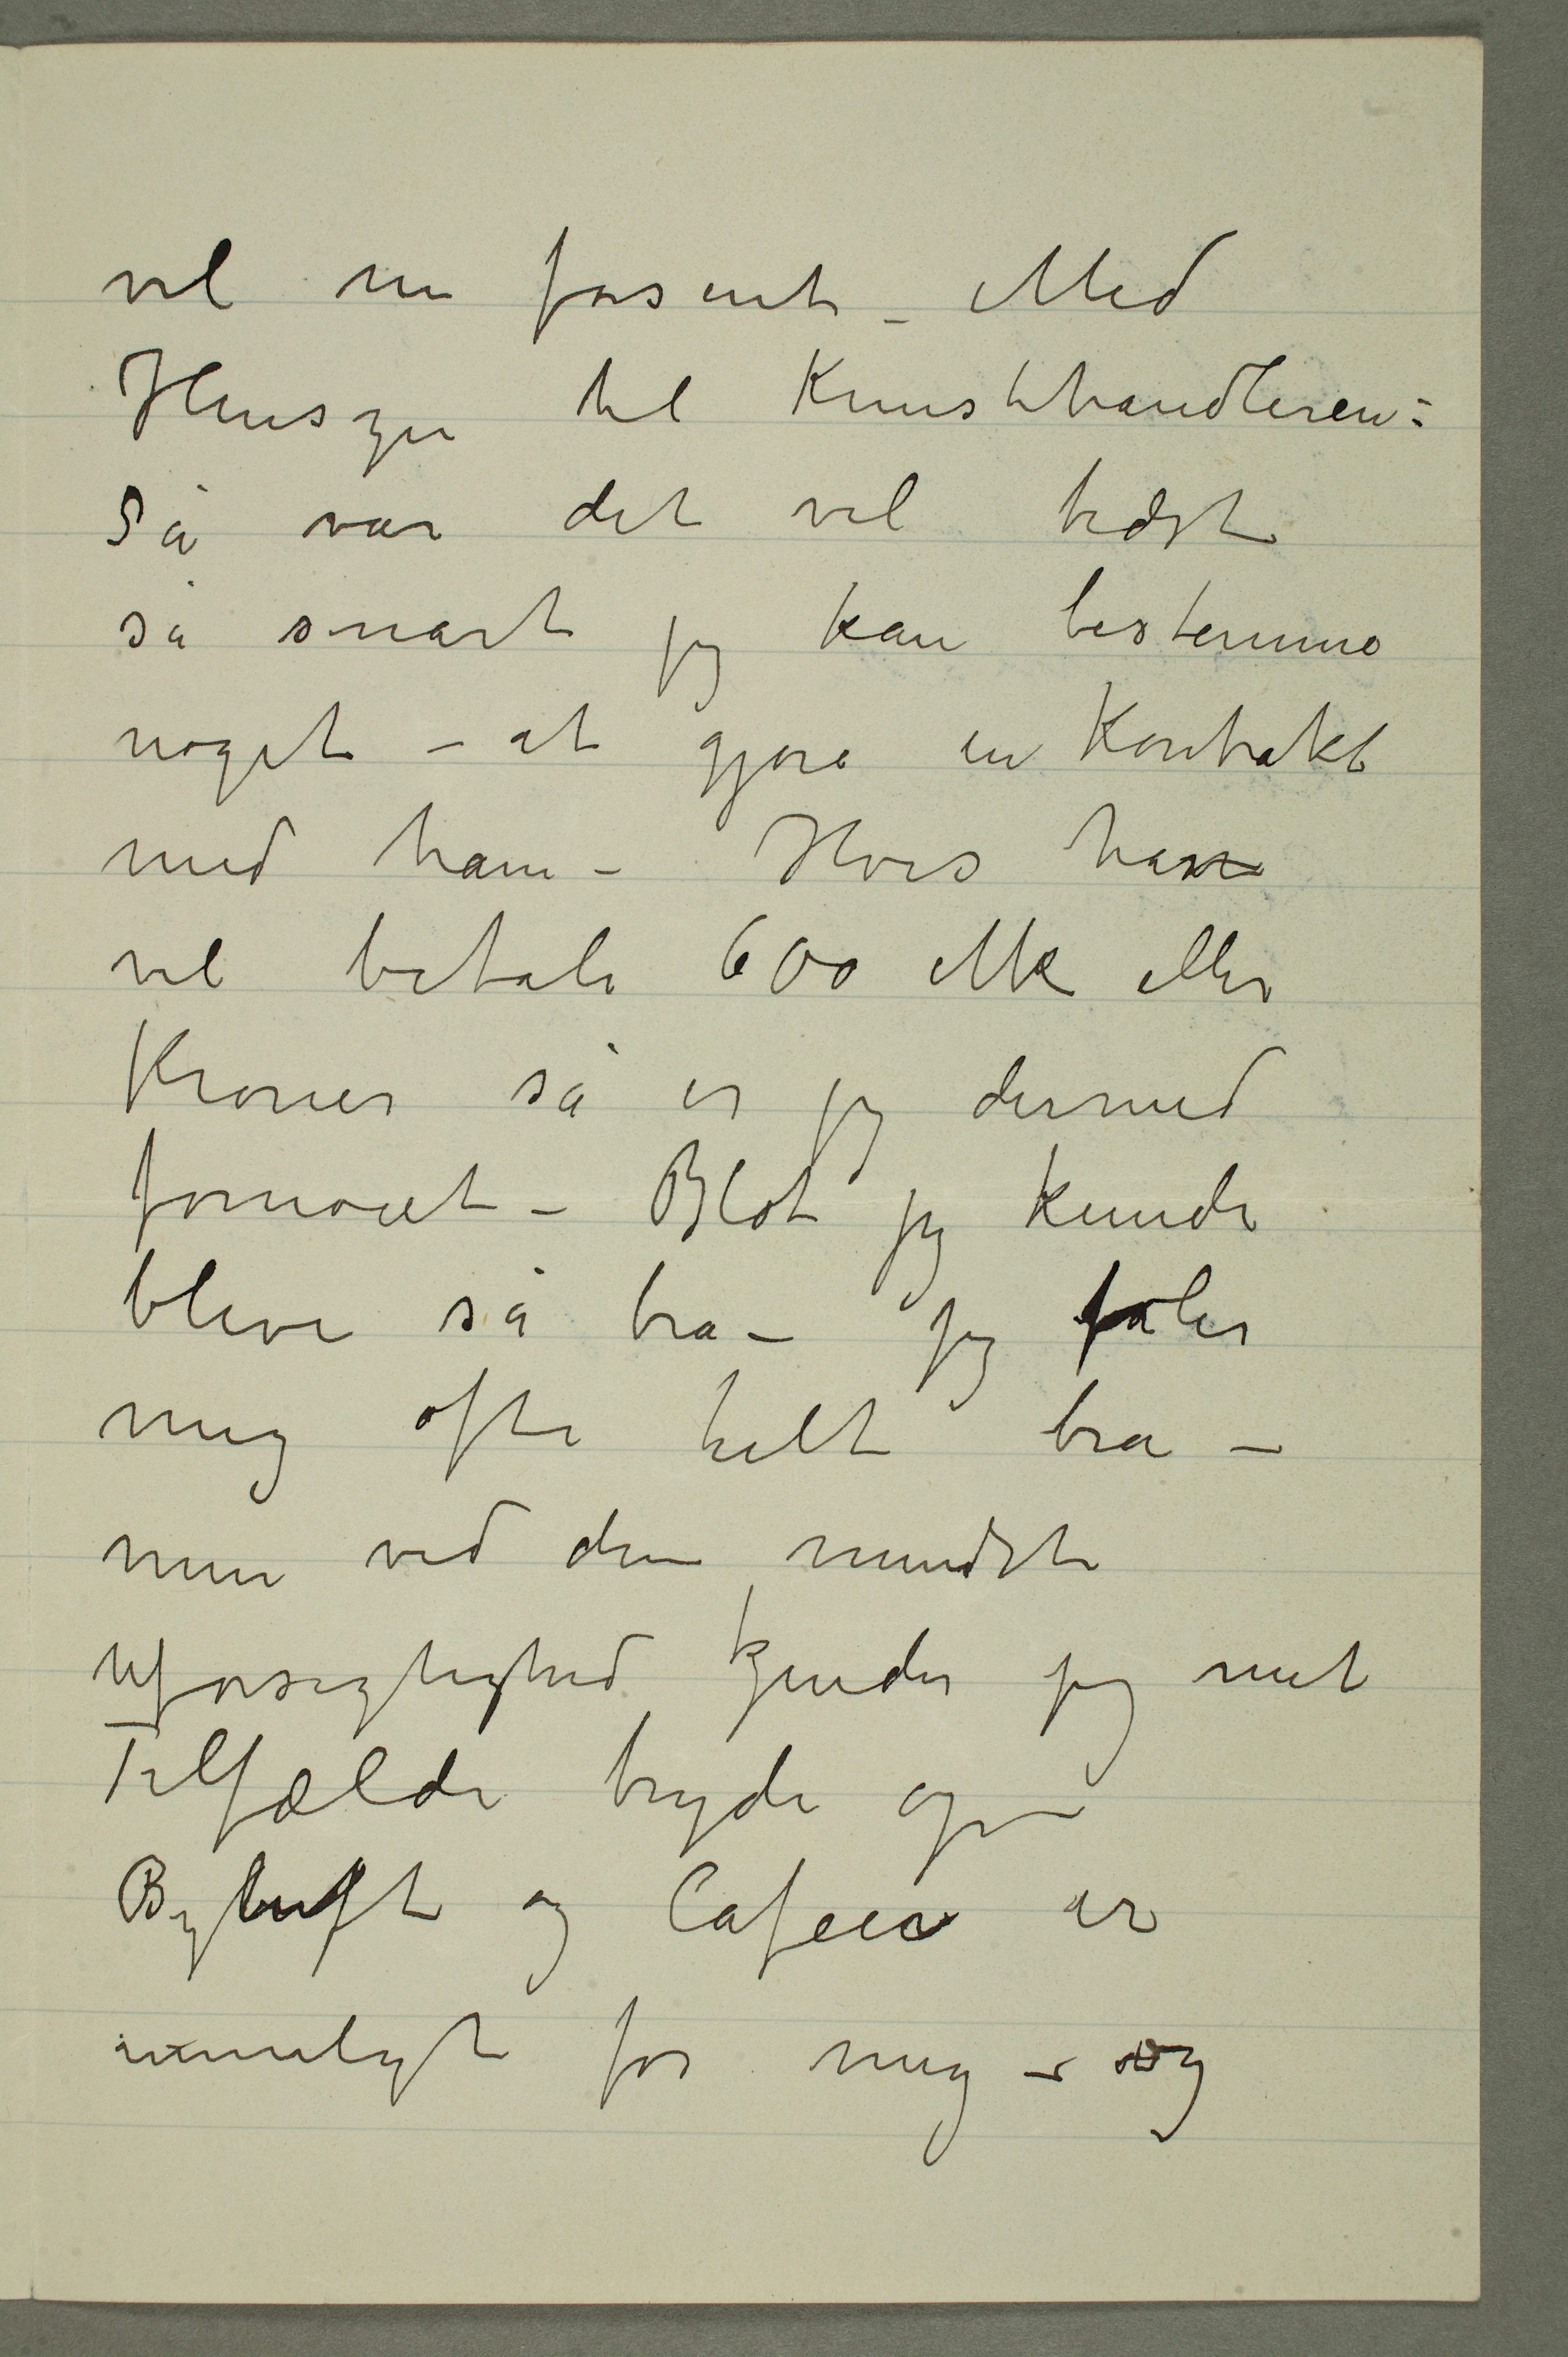 vel nu forsent – Med
Hensyn til Kunsthandleren:
Så var det vel bedst
så snart jeg kan bestemme
noget – at gjøre en Kontrakt
med ham – Hvis han
vil betale 600 Mk eller
Kroner så er jeg dermed
fornøiet – Blot jeg kunde
blive så bra – jeg føler
mig ofte helt bra –
men ved den mindste
Uforsigtighed kjender jeg mit
Tilfælde bryde op –
Byluft og Cafeer er
umuligt for mig – og